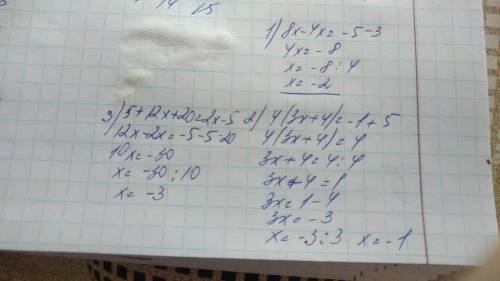 14 15
1) 8x-4x=-5-3
4x=-8
x=-8:4
x=-2
3) 5+12x+20=2x-5
12x-2x=-5-5-20
10x=-30
x=-30:10
x=-3
2) 4(3x+4)=-1+5
4(3x+4)=4
3x+4=4:4
3x+4=1
3x=1-4
3x=-3
x=-3:3 x=-1